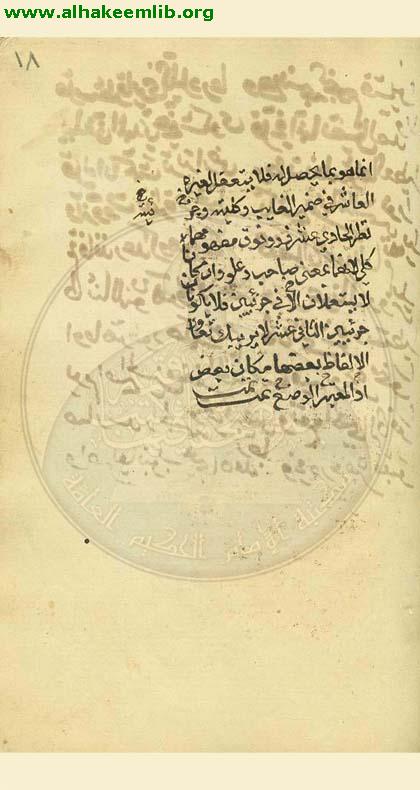 www.alhakeemlib.org
١٨
انما هو بما يحصل له فلا يتعقل لغيره
العاشر في ضمير الغايب وكليته وجز
نظر الحادي عشر ذو وفوق مفهومهما
كلي لانهما بمعنى صاحب وعلو وان كانا
لا يستعملان الا في جزئيين فلا يكونان
جزئيين الثاني عشر لا يريبك تعاور
الالفاظ بعضها مكان بعض
اذ المعتبر الوضع تمت تمت
مكتبة الإمام الحكيم العامة